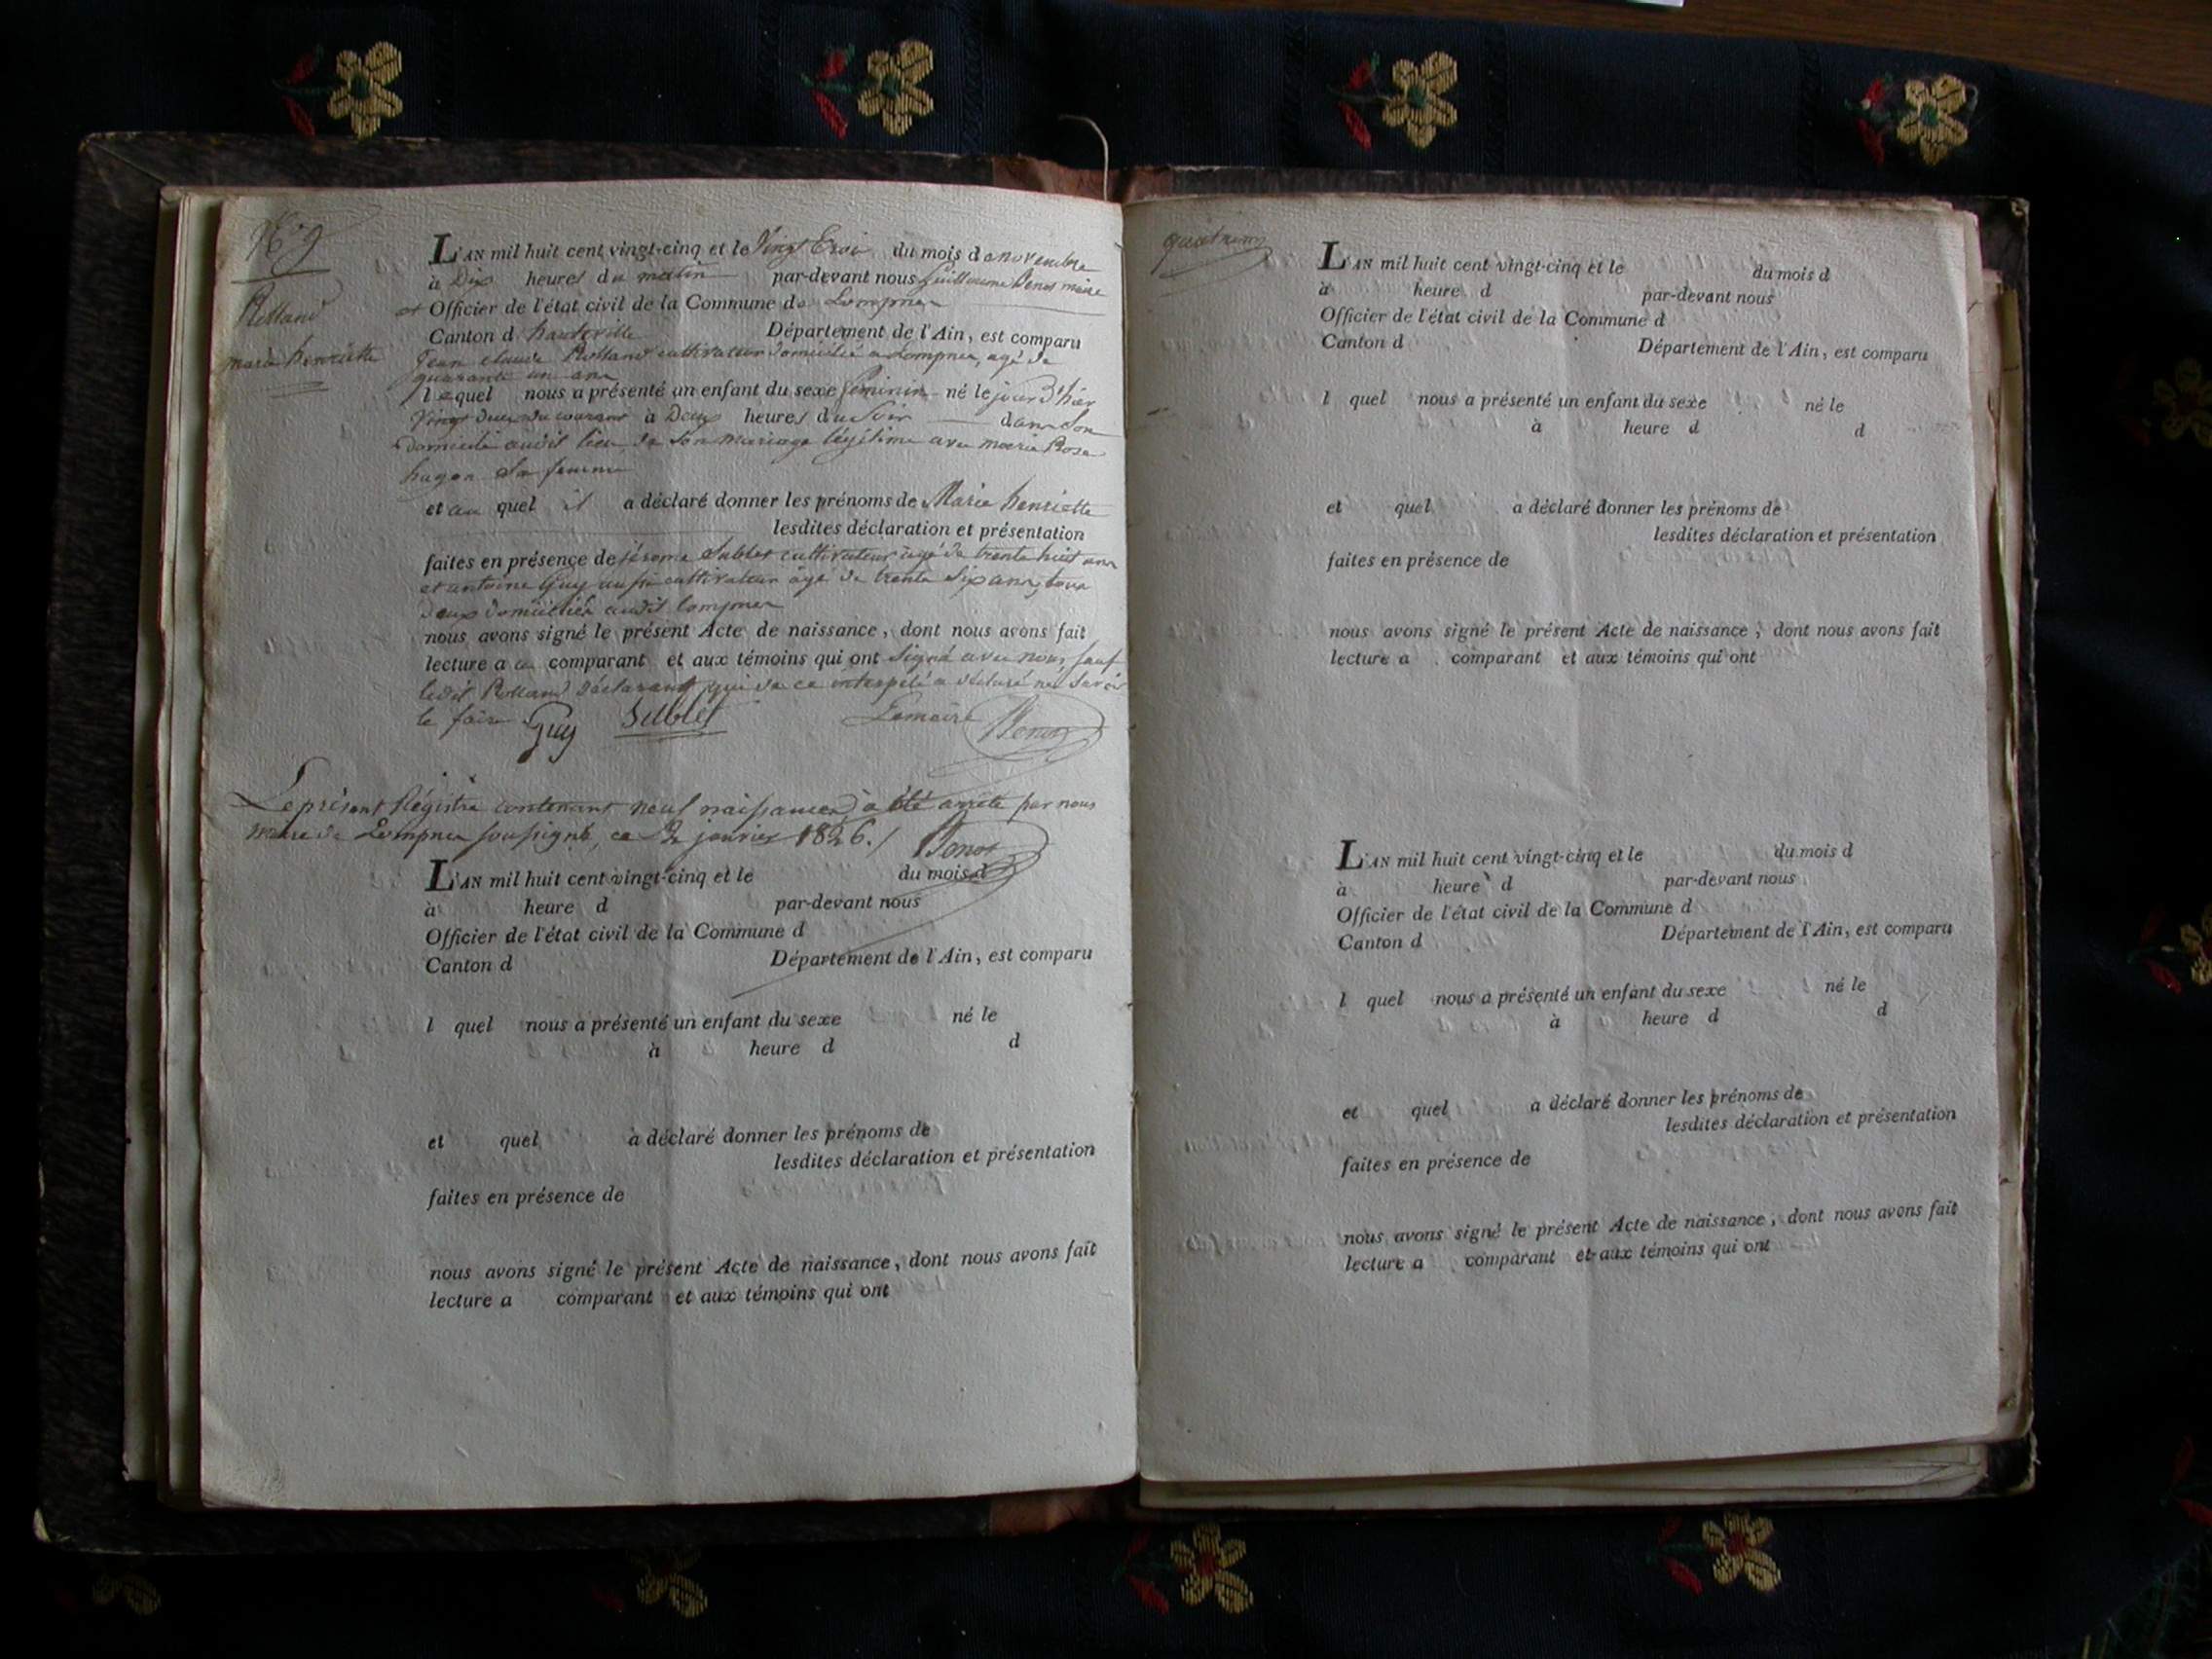 N° 9
Rolland
marie henriette
L'AN mil huit cent vingt-cinq et le Vingt Troi du mois de novembre
à Dix heures du matin par-devant nous Guillaume Benot maire
et Officier de l'état civil de la Commune de Lompnes
Canton d hauteville Département de l'Ain, est comparu
Jean claude Rolland cultivateur domicilié a Lompnes, agé de
quarante un ans
lequel nous a présenté un enfant du sexe feminin né le jour d'hier
Vingt deux du courant à Deux heures du Soir dans Son
domicile audit lieu, de Son mariage légitime avec marie Rose
hugon Sa femme
et au quel il a déclaré donner les prénoms de Marie henriette
lesdites déclaration et présentation
faites en présence de jérome Sublet cultivateur agé de trente huit ans
et antoine Guy aussi cultivateur âgé de trente Six ans, tous
deux domiciliés audit Lompnes
nous avons signé le présent Acte de naissance, dont nous avons fait
lecture a au comparant et aux témoins qui ont Signé avec nous, sauf
ledit Rolland déclarant qui de ce interpelé a déclaré ne Savoir
le faire Guy Sublet Lemaire Benot
Le présent Régistre contenant neuf naissances, a été arrêté par nous
maire de Lompnes soussigné, ce 2 janvier 1826. / Benot
L'AN mil huit cent vingt-cinq et le du mois d
à heure d par-devant nous
Officier de l'état civil de la Commune d
Canton d Département de l'Ain, est comparu
l quel nous a présenté un enfant du sexe né le
à heure d d
et quel a déclaré donner les prénoms de
lesdites déclaration et présentation
faites en présence de
nous avons signé le présent Acte de naissance, dont nous avons fait
lecture a comparant et aux témoins qui ont
L'AN mil huit cent vingt-cinq et le du mois d
à heure d par-devant nous
Officier de l'état civil de la Commune d
Canton d Département de l'Ain, est comparu
l quel nous a présenté un enfant du sexe né le
à heure d d
et quel a déclaré donner les prénoms de
lesdites déclaration et présentation
faites en présence de
nous avons signé le présent Acte de naissance, dont nous avons fait
lecture a comparant et aux témoins qui ont
L'AN mil huit cent vingt-cinq et le du mois d
à heure d par-devant nous
Officier de l'état civil de la Commune d
Canton d Département de l'Ain, est comparu
l quel nous a présenté un enfant du sexe né le
à heure d d
et quel a déclaré donner les prénoms de
lesdites déclaration et présentation
faites en présence de
nous avons signé le présent Acte de naissance, dont nous avons fait
lecture a comparant et aux témoins qui ont